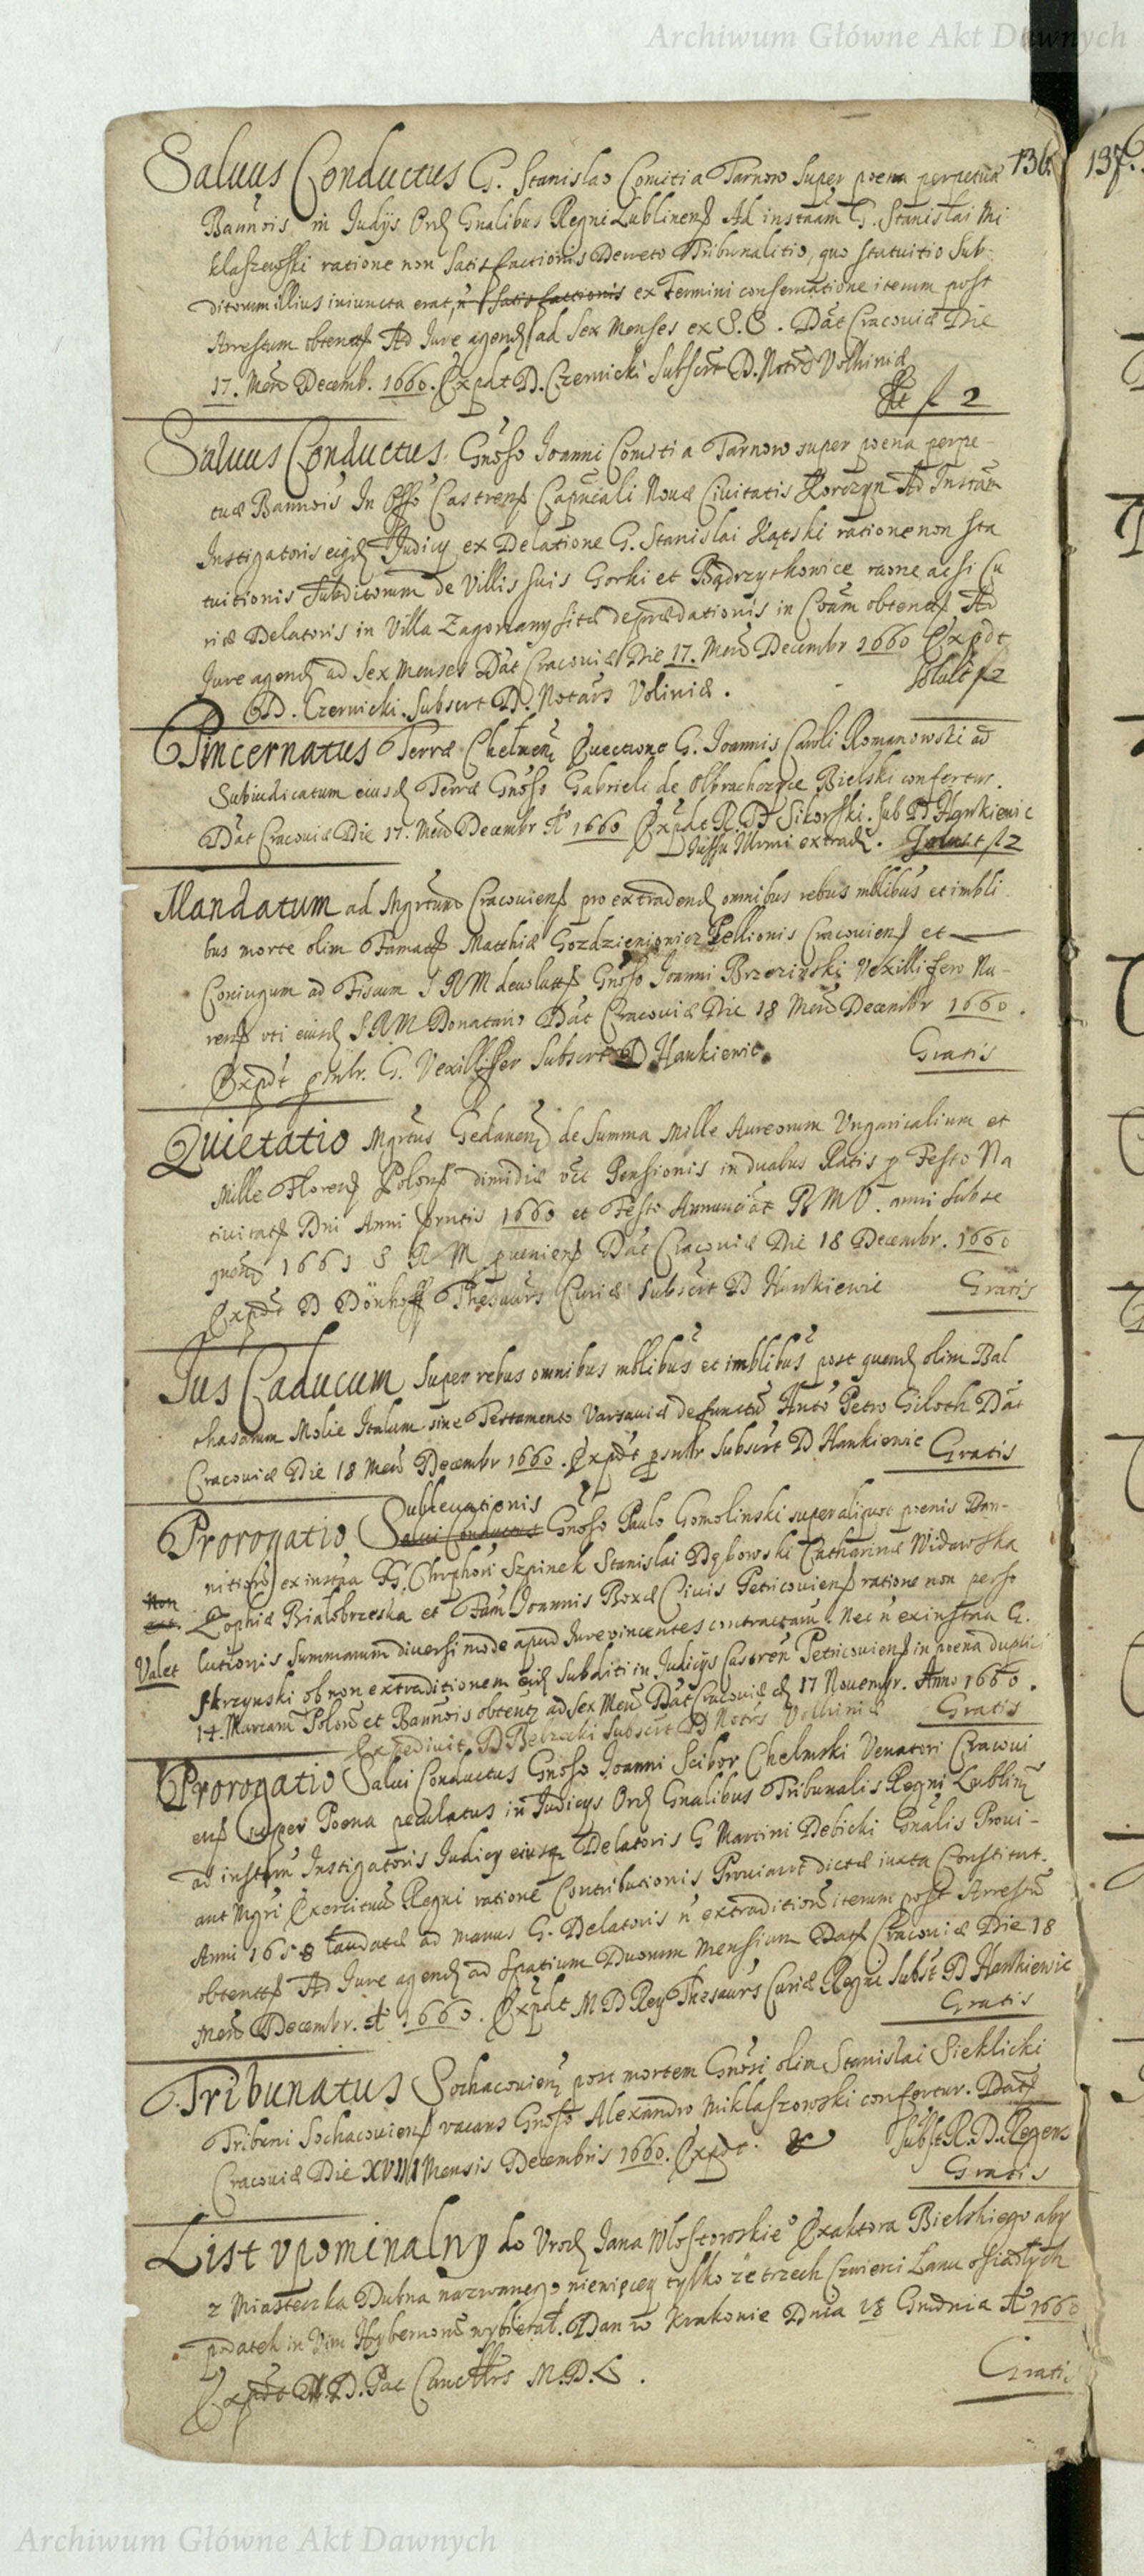 Archiwum Główne Akt Dawnych
136.
137.
Saluus Conductus G. Stanislao Comiti a Tarnow super poena perpetuæ
Bannois in Judijs Ordń Gnalibus Regni Lublinens Ad instaām G. Stanislai Mi
klaszewski ratione non satisfactionis Decreto Tribunalitio, quo statuitio Sub-
ditorum illius iniuncta erat, n satisfactionis ex Termini conseruatione iterum post
Arrestum obtent Ad Jure agend ad Sex Menses ex S.C. Dat Cracoviæ Die
17. Men Decemb. 1660. Expdt D. Czernicki Subscrt D. Notrs Volhiniæ
f 2
Saluus Conductus. Gnoso Joanni Comiti a Tarnow super poena perpe-
tuæ Bannois In Offo Castrens Capucali Nouæ Ciuitatis Korczyn Ad Instām
Instigatoris eiusd Judicij ex Delatione G. Stanislai Kątski ratione non sta
tuitionis Subditorum de Villis suis Gorki et Pądrzychowice raone acsi Cu
riæ Delatoris in Villa Zagorzany sitæ deprædationis in Coūm obtent Ad
Jure agend ad Sex Menses Dat Cracoviæ Die 17. Men Decembr 1660 Expdt
D. Czernicki. Subscrt D. Notars Voliniæ.
Soluit f 2
Pincernatus Terræ Chelmens Euectione G. Joannis Caroli Romanowski ad
Subiudicatum eiusd Terræ Gnoso Gabrieli de Olbrachczyce Bielski confertur.
Dat Cracoviæ Die 17. Men Decembr Ao 1660 Expdt R. D Sikorski. Sub D Hankiewic
Jussu Illmi extrad. f 2
Mandatum ad Mgrtum Cracouiens pro extradend omnibus rebus mblibus et imbli
bus morte olim Famat Matthiæ Gozdzieniowicz Pellionis Cracouiens et
Coniugum ad Fiscum S R M deuolut Gnoso Joanni Brzezinski Vexillifero Nu-
rens vti eiusd S.R.M Donatario Dat Cracoviæ Die 18 Men Decembr 1660.
Expdt psnlr. G. Vexillifer Subscrt D Hankiewic.
Gratis
Quietatio Mgrtus Gedanens de Summa Mille Aureorum Vngaricalium et
Mille Florens Polons dimidiæ vcc Pensionis in duabus Ratis p Festo Na
tiuitat Dni Anni pntis 1660 et Festo Annunciat B M V. anni subse
quens 1661 S R M pueniens Dat Cracoviæ Die 18 Decembr. 1660
Expdt D Dönhoff Thesaurs Curiæ Subscrt D Hankiewic
Gratis
Jus Caducum super rebus omnibus mblibus et imblibus post quend olim Bal
thasarum Molie Italum sine Testamento Varsauiæ defunctum Petro Giloth Dat
Cracoviæ Die 18 Men Decembr 1660. Expdt psnlr Subscrt D Hankiewic
Gratis
Prorogatio Subleuationis
Salui Conductus Gnoso Paulo Gomolinski super aliquot poenis Ban-
nitionū ex instāa GG. Chrphori Szpinek Stanislai Dębowski Catharinæ Widawska
Zophiæ Białobrzeska et Fam Joannis Boxæ Ciuis Petricouiens ratione non perso
lutionis summarum diuersimode apud Jurevincentes contractarū. Nec n ex instāa G.
Skrzynski ob non extraditionem eius subditi in Judicijs Castren Petricouiens in poena duplici
14. Marcarū Polon et Bannois obtent ad sex Men Dat Cracoviæ d 17 Nouembr. Anno 1660.
Expediuit D Bełzecki Subscrt D Notrs Volhiniæ
Gratis
Non
Valet
Prorogatio Salui Conductus Gnoso Joanni Scibor Chelmski Venatori Cracoui
ens super Poena peculatus in Judicijs Ord Gnalibus Tribunalis Regni Lublins
ad instām Instigatoris Judicij eiusq Delatoris G Martini Debicki Gnalis Proui-
ant Mgri Exercituū Regni ratione Contributionis Prouiant dictæ iuxta Constitut.
Anni 1658 laudatæ ad manus G. Delatoris n extraditionē iterum post Arrestū
obtent Ad Jure agend ad spatium Duorum Mensium Dat Cracoviæ Die 18
Men Decembr. A 1660. Expdt M D Rey Thesaurs Curiæ Regni Subst D Hankiewic
Gratis
Tribunatus Sochacouiens post mortem Gnosi olim Stanislai Sieklicki
Tribuni Sochacouiens vacans Gnoso Alexandro Miklaszowski confertur. Dat
Cracoviæ Die XVIII Mensis Decembris 1660. Expdt. Subst R. D. Regens
Gratis
List vpominalny do Vrodz Jana Wlostowskieo Exaktora Bielskiego aby
z Miasteczka Dubna nazwanego niewięcey tylko ze trzech Czwierci Łanu osiadłych
podatek in Vim Hybernorū wybierał. Dan w Krakowie Dnia 18 Grudnia Ao 1660
Expdt D. Pac Cancellrs M.D.L.
Gratis
Archiwum Główne Akt Dawnych